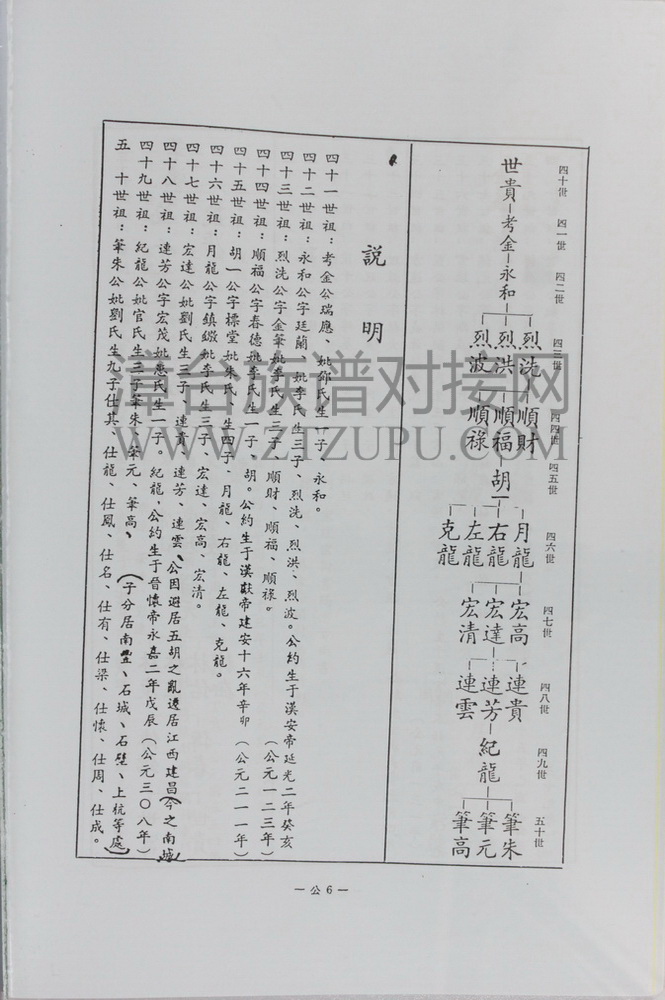 四十世 四一世 四二世 四三世 四四世 四五世 四六世 四七世 四八世 四九世 五十世
世貴－考金－永和
烈洗 烈洪 烈波
順財 順福 順祿
胡一
月龍 右龍 左龍 克龍
宏高 宏達 宏清
連貴 連芳 連雲
紀龍
筆朱 筆元 筆高
説明
四十一世祖：考金公瑞應、妣鄧氏生一子、永和。
四十二世祖：永和公字廷蘭、妣李氏生三子、烈洗、烈洪、烈波。公約生于漢安帝延光二年癸亥（公元一二三年）
四十三世祖：烈洗公字金筆妣李氏生三子、順財、順福、順祿。
四十四世祖：順福公字春德妣李氏生一子、胡。公約生于漢獻帝建安十六年辛卯（公元二一一年）
四十五世祖：胡一公字標堂妣朱氏、生四子、月龍、右龍、左龍、克龍。
四十六世祖：月龍公字鎮緻妣李氏生三子、宏達、宏高、宏清。
四十七世祖：宏達公妣劉氏生三子、連貴、連芳、連雲、公因避居五胡之亂遷居江西建昌（今之南城）
四十八世祖：連芳公字宏茂妣惠氏生一子。紀龍，公約生于晉懷帝永嘉二年戊辰（公元三０八年）
四十九世祖：紀龍公妣官氏生三子筆朱、筆元、筆高、（子分居南豐、石城、石壁、上杭等處）
五十世祖：筆朱公妣劉氏生九子仕其、仕龍、仕鳳、仕名、仕有、仕梁、仕懷、仕周、仕成。
－公6－
漳台族谱对接网
WWW.ZTZUPU.COM